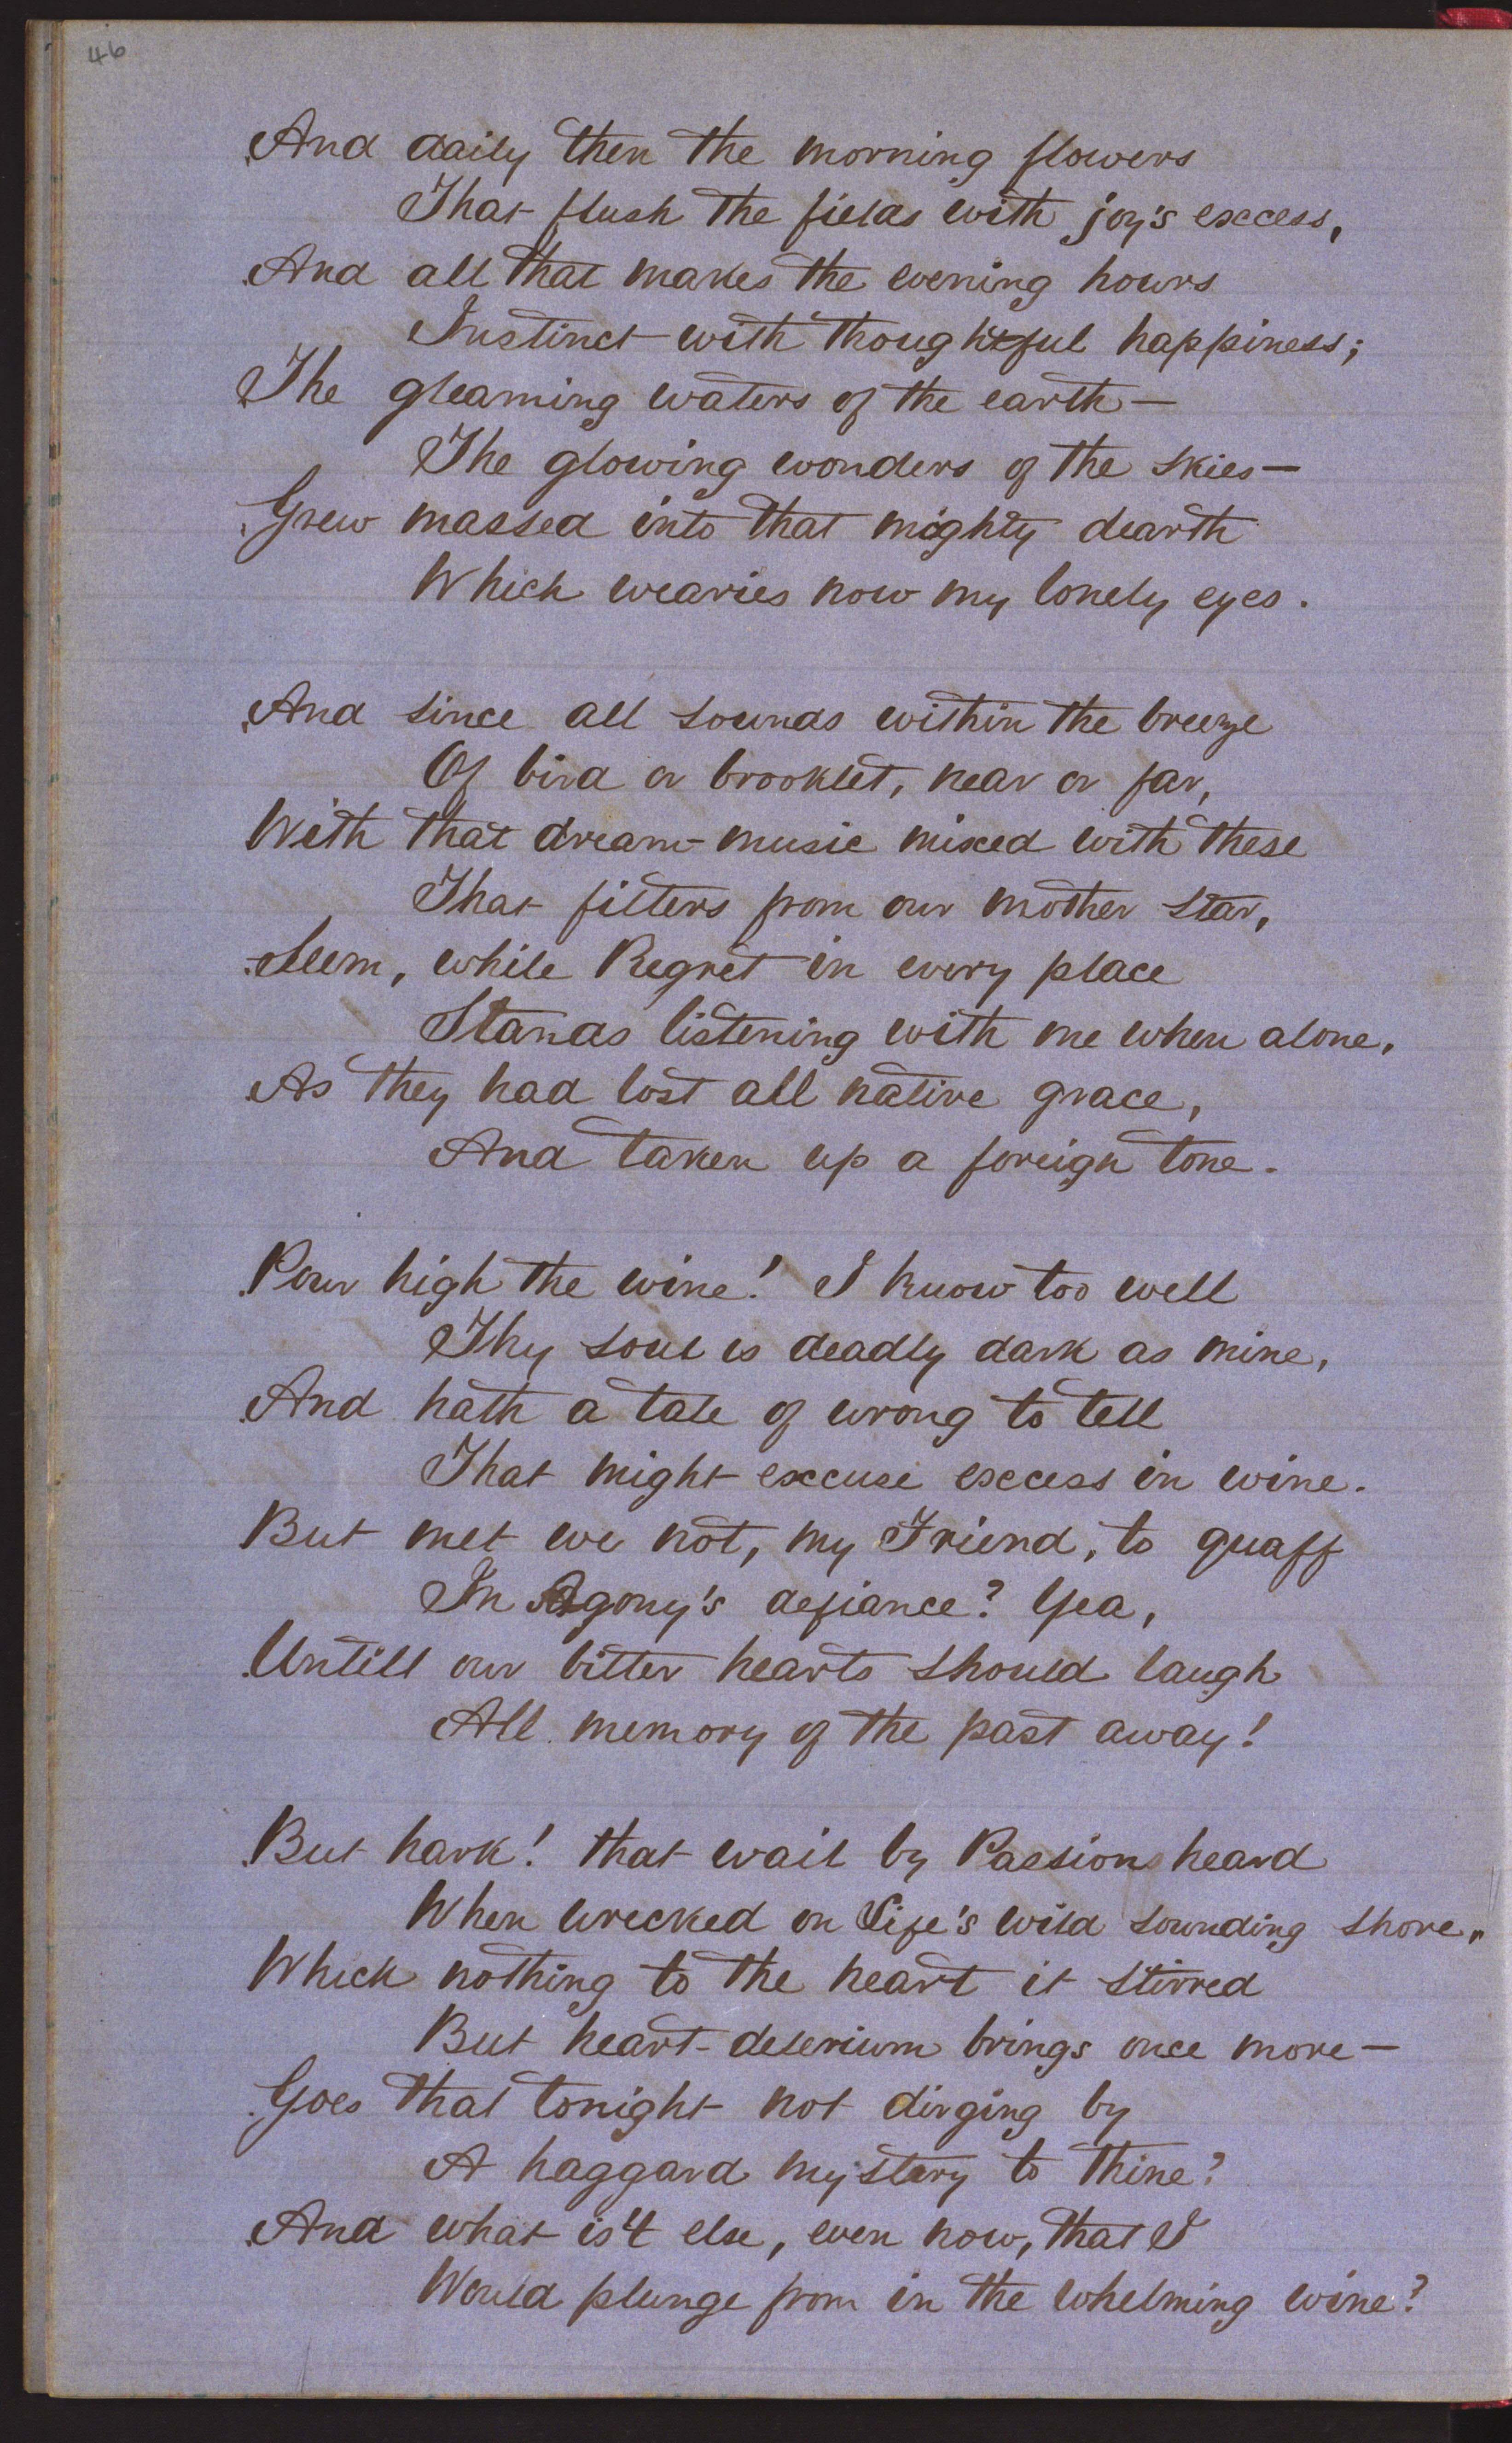 46
And daily then the morning flowers
That flush the fields with joy's excess,
And all that makes the evening hours
Instinct with thoughtful happiness;
The gleaming waters of the earth —
The glowing wonders of the skies —
Grew massed into that mighty dearth
Which wearies now my lonely eyes.
And since all sounds within the breeze
Of bird or brooklet, near or far,
With that dream-music mixed with these
That filters from our mother star,
Seem, while Regret in every place
Stands listening with me when alone,
As they had lost all native grace,
And taken up a foreign tone.
Pour high the wine! I know too well
Thy soul is deadly dark as mine,
And hath a tale of wrong to tell
That might excuse excess in wine.
But met we not, my Friend, to quaff
In Agony's defiance? Yea,
Untill our bitter hearts should laugh
All memory of the past away!
But hark! that wail by Passion heard
When wrecked on Life's wild sounding shore,
Which nothing to the heart it stirred
But heart-delerium brings once more —
Goes that tonight not dirging by
A haggard mystery to thine?
And what is't else, even now, that I
Would plunge from in the whelming wine?